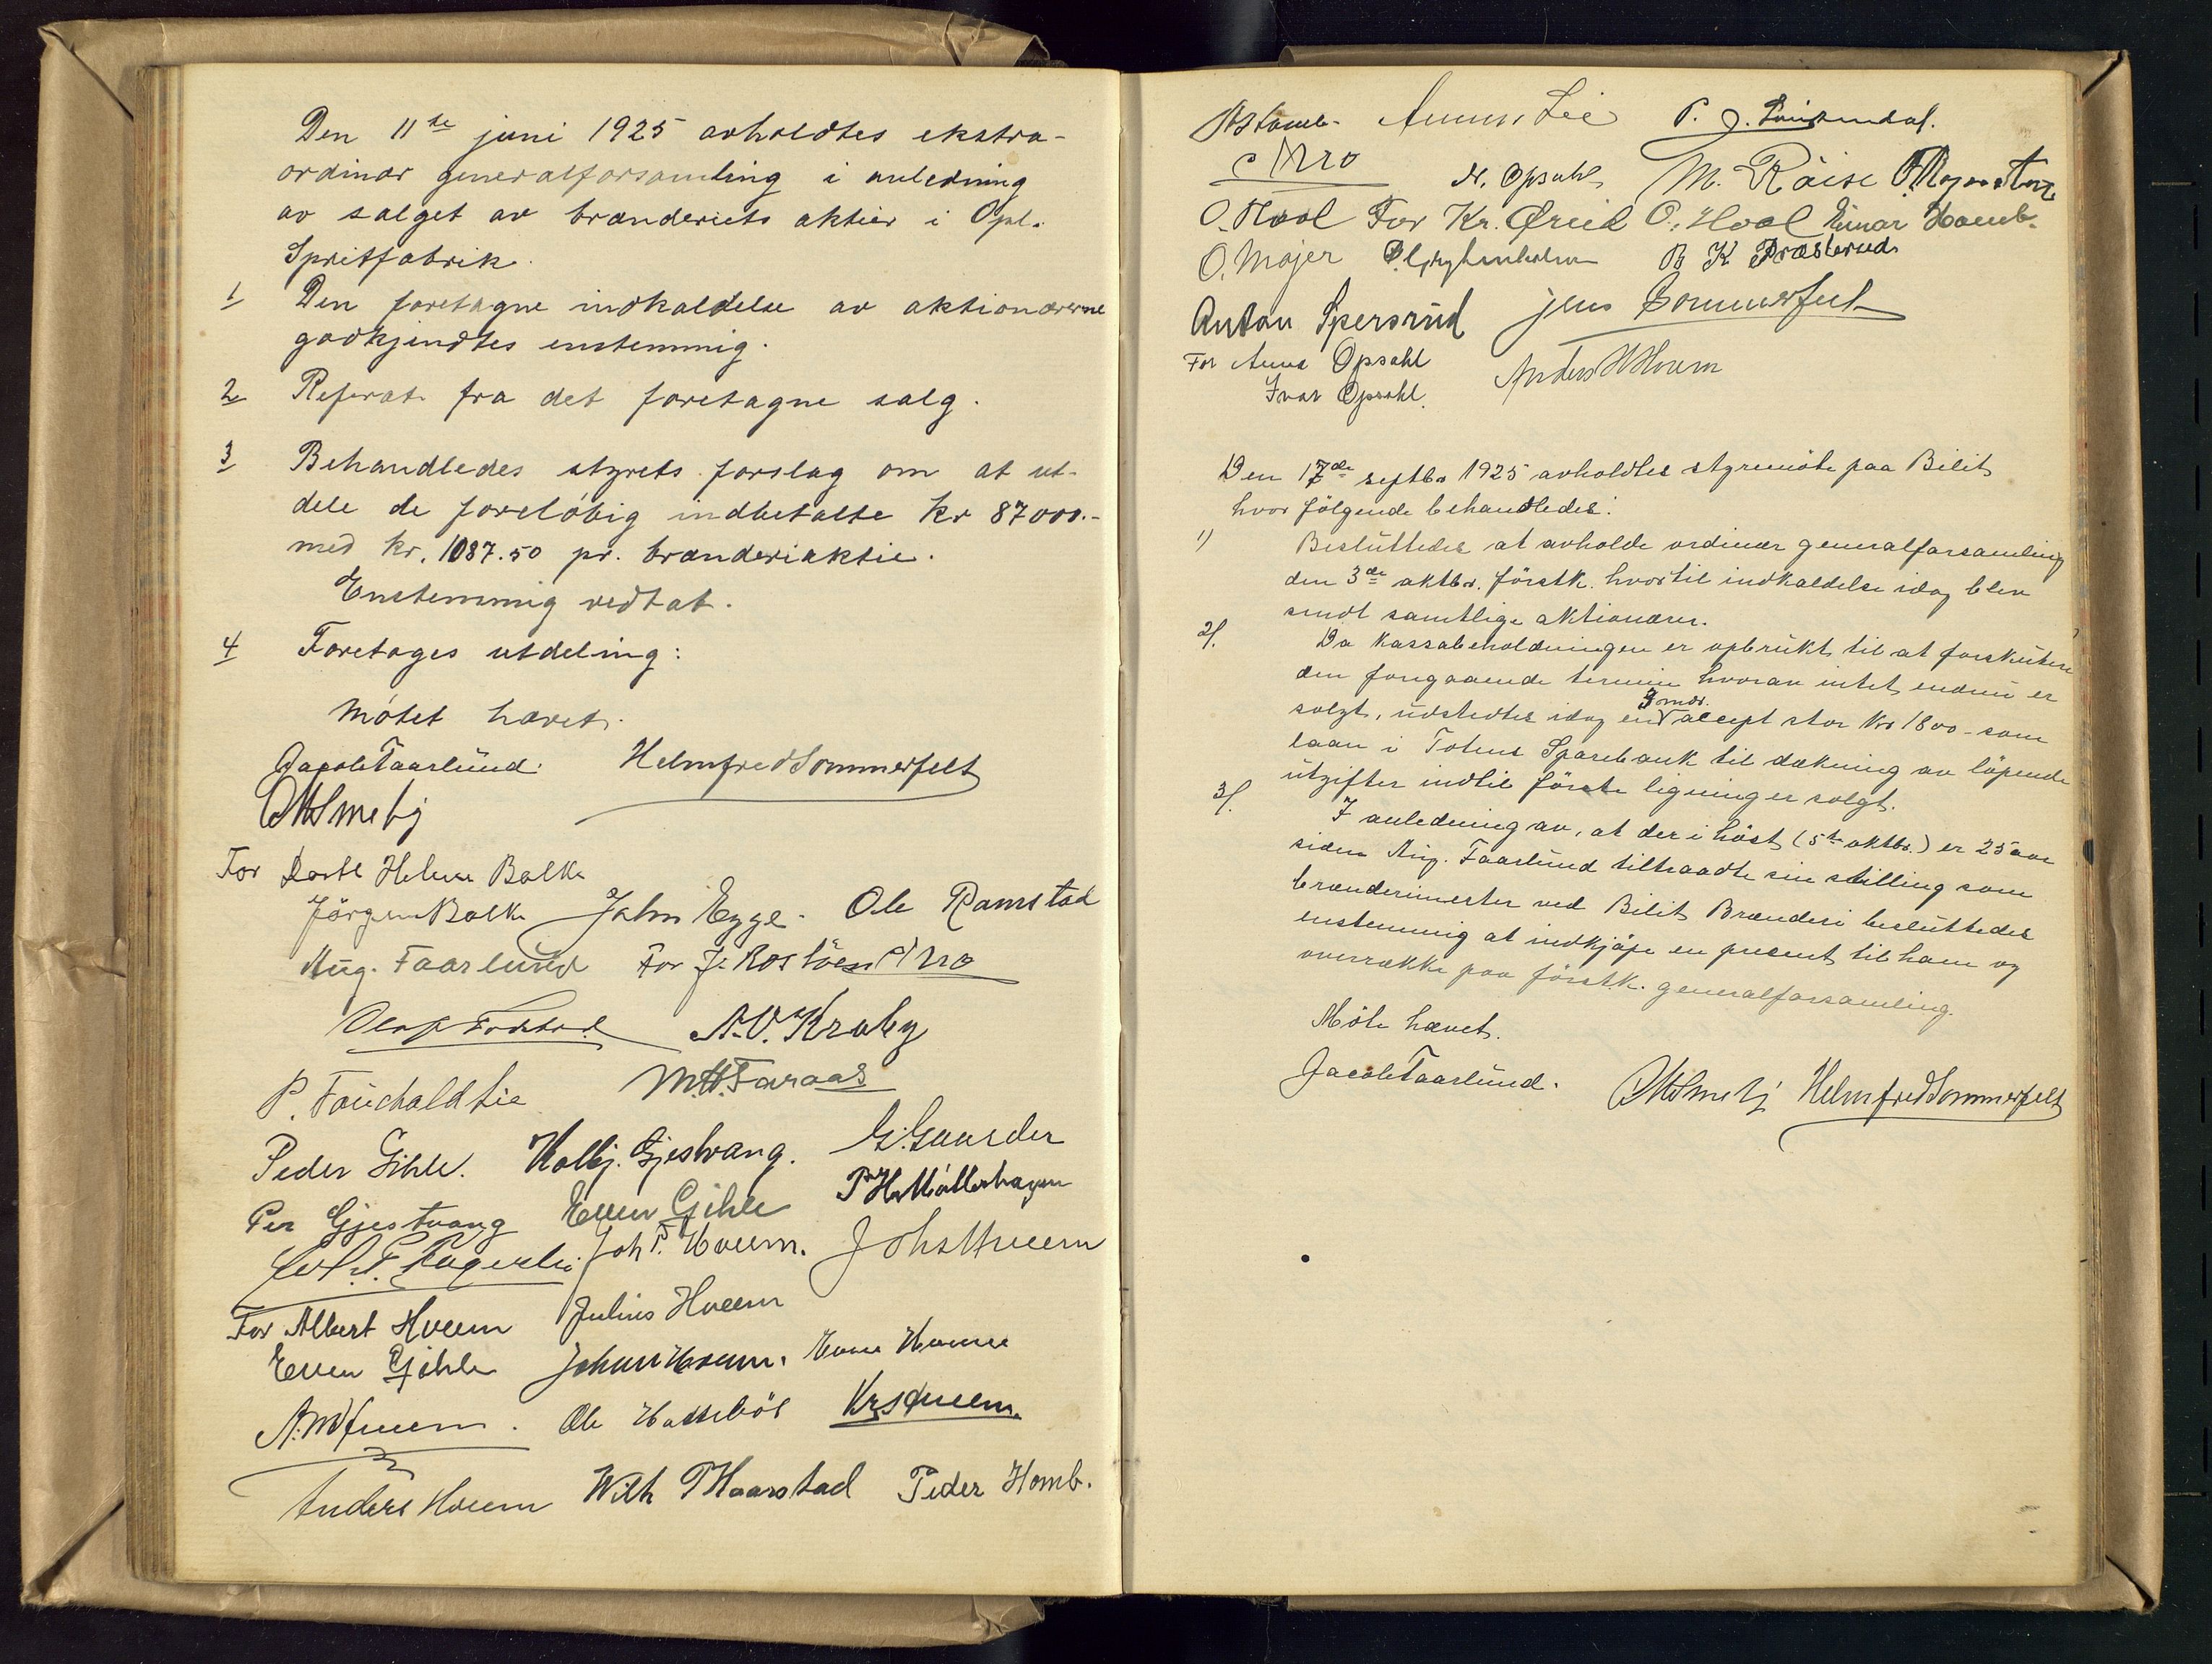 Den 11te juni 1925 avholdtes ekstra-
ordinær generalforsamling i anledning
av salget av brænderiets aktier i Opl.
Spritfabrik.
1 Den foretagne indkaldelse av aktionærerne
godkjendtes enstemmig.
2 Referat fra det foretagne salg.
3 Behandledes styrets forslag om at ut-
dele de foreløbig indbetalte Kr 87000.-
med kr. 1087.50 pr. brænderiaktie.
Enstemmig vedtat.
4 Foretages utdeling:
Møtet hævet.
Jacob Faarlund. Helmfred Sommerfelt
Smeby
For Dorte Helene Balke
Jörgen Balke John Egge. Ole Ramstad
Aug. Faarlund For J. Rostöen
A.O. Kraby
P. Fauchald Lie M.H. Faraas
Peder Gihle. Kolbj. Gjestvang. G. Gaarder
Per Gjestvang Even Gihle P. H. Möllerhagen
Fagerli. Joh P. Hveem. Johs Hveem
For Albert Hveem Julius Hveem
Even Gihle Johan Hveem.
A. M. Hveem. Ole Hasselböl Krs Hveem.
Anders Hveem Wilh Haarstad Peder Homb.
Lie P. J.
N. Opsahl M. Röise
O. Hool For Kr. Øreid O. Hool Einar Homb.
O. Majer B K Præsterud
Anton Spersrud Jens Sommerfelt
For Anna Opsahl Anders Hveem
Ivar Opsahl.
Den 17de septbr 1925 avholdtes styremöte paa Bilit
hvor fölgende behandledes:
1) Besluttedes at avholde ordinær generalforsamling
den 3de oktbr. förstk. hvortil indkaldelse idag blev
sendt samtlige aktionærer.
2/. Da kassabeholdningen er opbrukt til at forskutere
den forgaaende termin hvorav intet endnu er
3 mdr.
solgt, udstedtes idag en accept stor Kr 1800 - som
laan i Totens Sparebank til dækning av löpende
utgifter indtil förste ligning er solgt.
3/. I anledning av, at der i höst (5te oktbr.) er 25 aar
siden Aug. Faarlund tiltraadte sin stilling som
brænderimester ved Bilit Brænderi besluttedes
enstemmig at indkjöpe en present til ham og
overrække paa förstk. generalforsamling.
Möte hævet.
Jacob Faarlund. Smeby Helmfred Sommerfelt